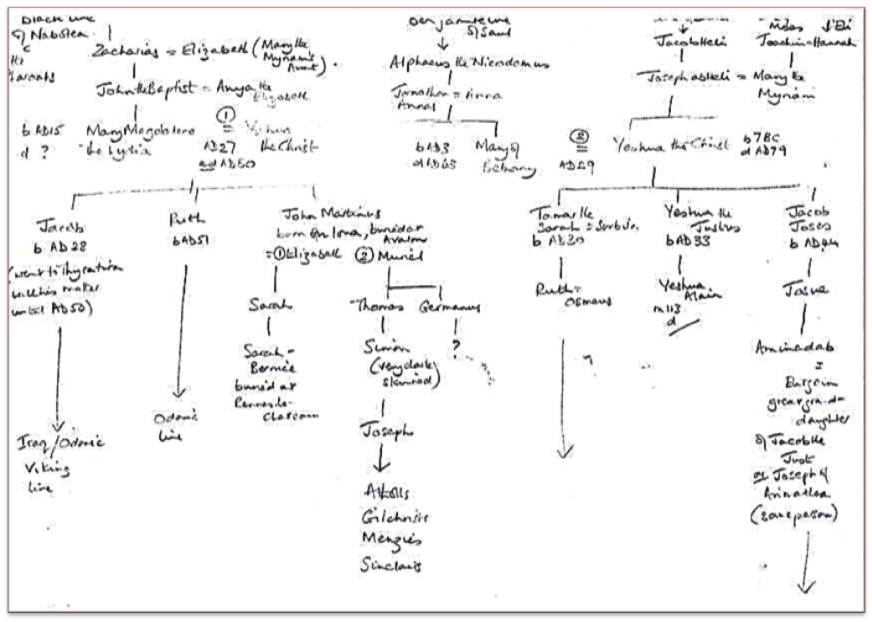 Black line
of Nabatea
Zacharias = Elizabeth (Mary the
Myriam's
Aunt).
John the Baptist = Anya the
Elizabeth
b AD15 Mary Magdalene ① Yeshua
d ? the Lydia = AD27 the Christ
AD50
Jacob
b AD28
(went to
until AD50)
Iraq/Odonic
Viking
line
Ruth
b AD51
Odonic
line
John Martinus
born on Iona, buried at
Avalon
= ① Elizabeth ② Muriel
Sarah
Sarah =
Bernice
buried at
Rennes-le-
Chateau
Thomas Germanus
Simon
(very dark
skinned)
?
Joseph
Gilchrist
Menzies
Sinclairs
Benjamite line
of Saul
Alphaeus the Nicodemus
Jonathan = Anna
Annas
b AD3 Mary of
Bethany
② = AD29
Jacob Heli
Joachim = Hannah
Joseph ab Heli = Mary the
Myriam
Yeshua the Christ b 7BC
d AD79
Tamar the
Sarah =
b AD30
Ruth =
Yeshua the
Justus
b AD33
Yeshua
Alain
m 113
d
Jacob
Joses
b AD44
Josue
Aminadab
=
Eurgein
great grand-
daughter
of Jacob the
Just
or Joseph of
Arimathea
(same person)